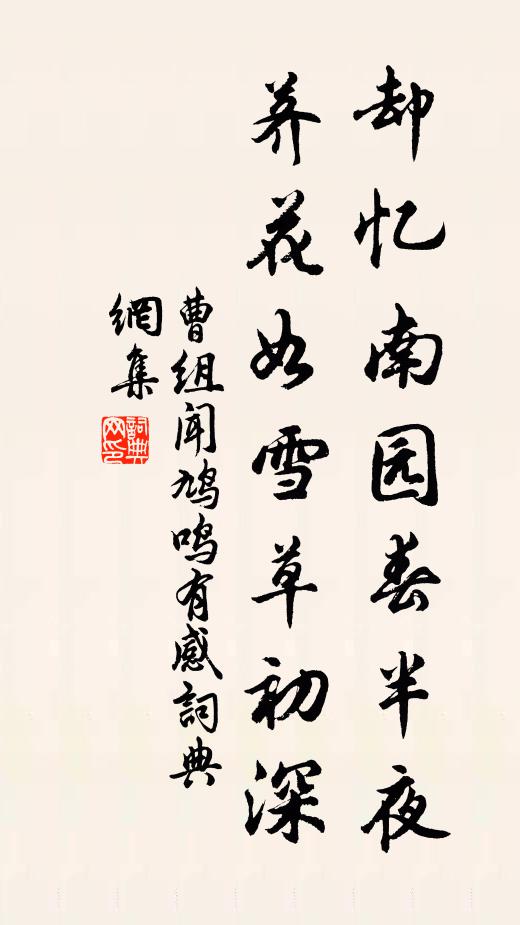 却忆南园春半夜
荞花如雪草初深
曹组闻鸠鸣有感詞典
網集
詞典
网印